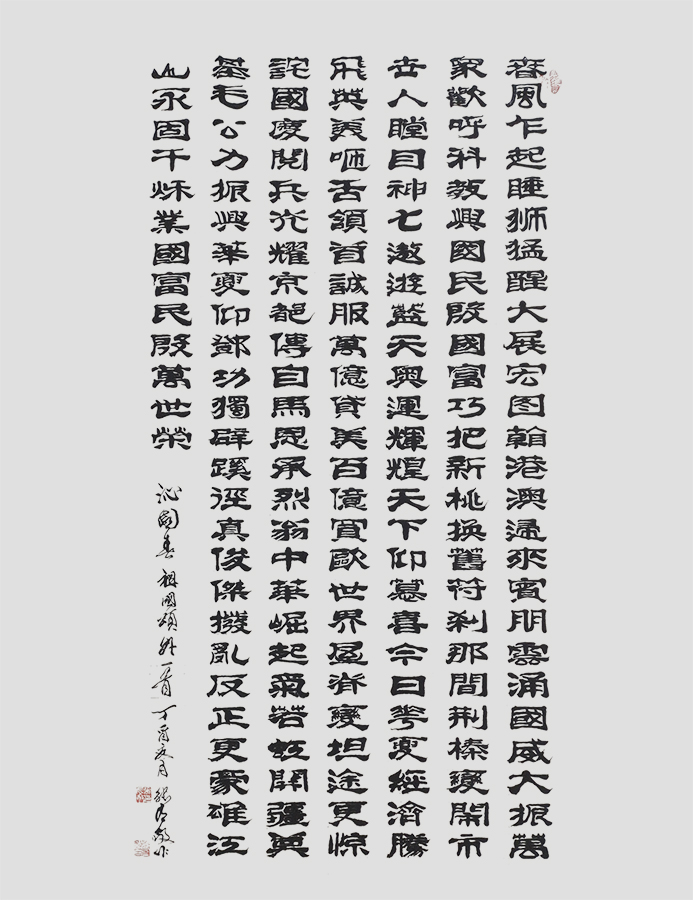 春風乍起睡狮猛醒大展宏图翰港澳來賓朋雲涌國威大振萬
眾歡呼科教興國民殷國富巧把新桃換舊符刹那間荆榛變開市
世人瞠目神七遨遊藍天奥運輝煌天下仰慕喜今日華夏經濟騰
飛英美咂舌領首誠服萬億貸美百億買歐世界屋脊變坦途更惊
詫國慶閱兵光耀京都傳自馬恩承烈翁中華崛起氣若虹開疆奠
基毛公力振興華夏仰鄧功獨辟蹊徑真俊傑撥亂反正更豪雄江
山永固千秌業國富民殷萬世榮
沁園春 祖國頌外一首 丁酉夏月